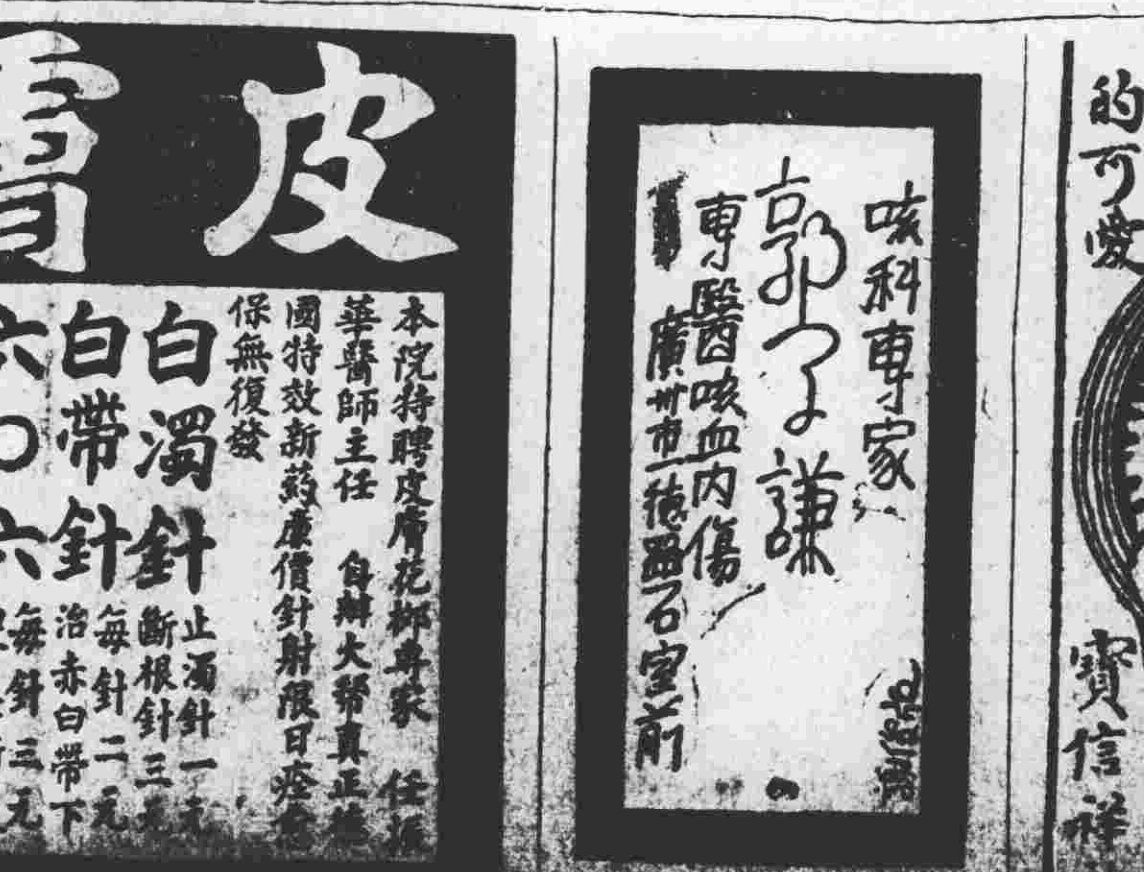 的可愛
寶信祥
咳科專家
郭
謙
專醫咳血內傷
廣州市一德路石室前
皮
本院特聘皮膚花柳專家 任振
華醫師主任 自辦大幫真正德
國特效新药廉價針射限日痊愈
保無復發
白濁針
止濁針一元
斷根針三元
白帶針
每針二元
治赤白帶下
六〇六
每針三元